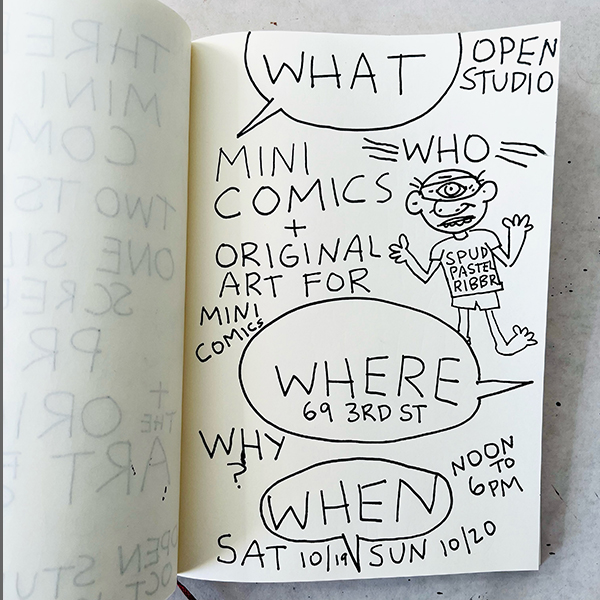 WHAT
OPEN
STUDIO
MINI
COMICS
+
ORIGINAL
ART FOR
MINI
COMICS
WHO
SPUD
PASTEL
RIBBR
WHERE
69 3RD ST
WHY
?
WHEN
NOON
TO
6PM
SAT 10/19 SUN 10/20